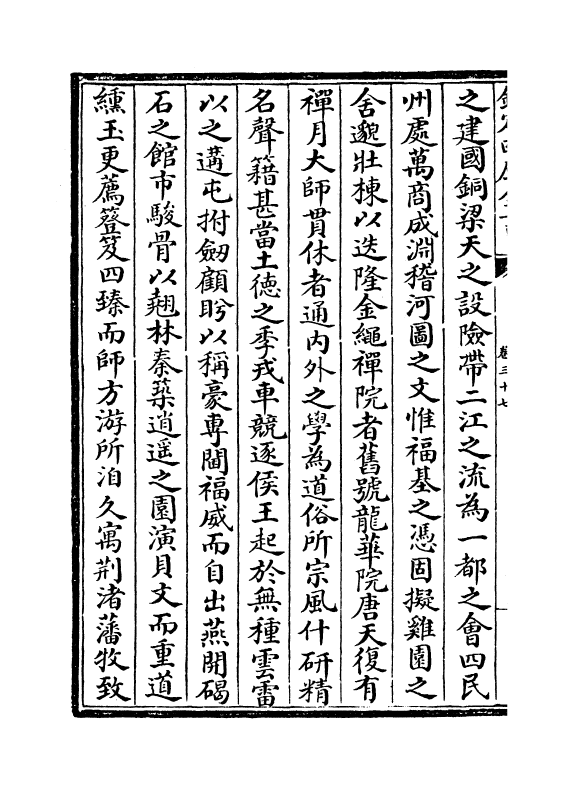 卷三十七
之建國銅梁天之設險帶二江之流為一都之會四民
州處萬商成淵稽河圖之文惟福基之憑固擬雞園之
舍邈壯棟以迭隆金繩禪院者舊號龍華院唐天復有
禪月大師貫休者通内外之學為道俗所宗風什研精
名聲籍甚當土德之季戎車競逐侯王起於無種雲雷
以之遘屯拊劒顧眄以稱豪專閫福威而自出燕開碣
石之館市駿骨以翹林秦築逍遥之園演貝文而重道
纁玉更薦簦笈四臻而師方游所洎久寓荆渚藩牧致